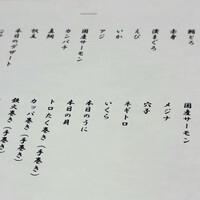 鮪とろ
赤身
漬まぐろ
えび
いか
アジ
国産サーモン
カンパチ
真鯛
本日のデザート
国産サーモン
メジナ
穴子
ネギトロ
いくら
本日のうに
本日の貝
トロたく巻き(手巻き)
カッパ巻き(手巻き)
鉄火巻き(手巻き)